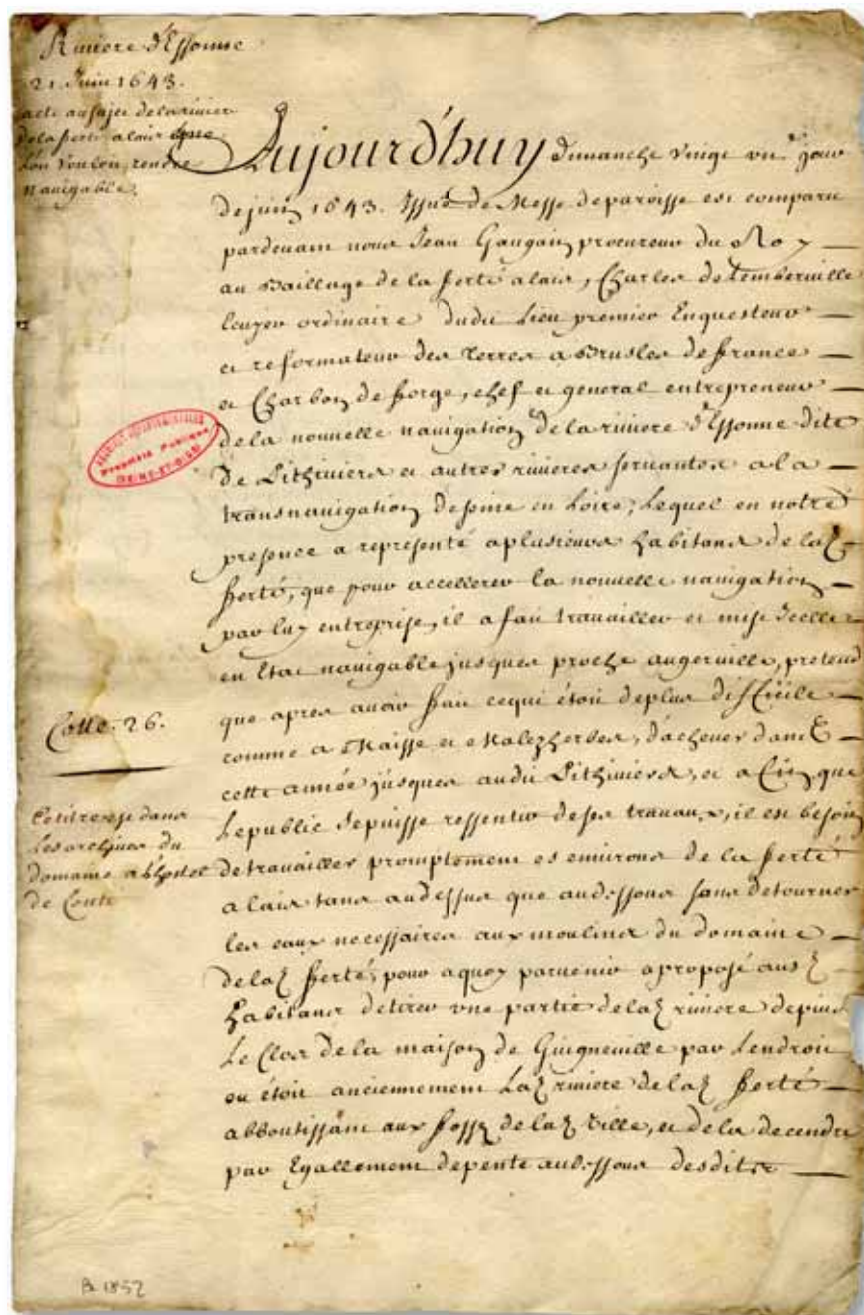 Riviere d'Essonne
21. Juin 1643.
acte au sujet de la rivier
de la ferté alais que
l'on vouloit rendre
navigable.
Aujourd'huy dimanche vingt un.e jour
de juin 1643. Issue de Messe de paroisse est comparu
pardevant nous Jean Gaugain procureur du Roy
au Baillage de la ferté alais, Charles de Lemberville
Ecuyer ordinaire dudit Lieu premier Enquesteur
et reformateur des Terres a Brusler de france
et Charbon de forge, chef et general entrepreneur
de la nouvelle navigation de la riviere d'Essonne dite
de Pithiviers et autres rivieres servantes a la
transnavigation de seine en Loire; Lequel en notre
presence a representé a plusieurs habitans de lad.
ferté, que pour accellerer la nouvelle navigation
par luy entreprise, il a fait travailler et mise Icelle
en Etat navigable jusques proche augerville, pretend
que apres avoir fait ce qui étoit de plus difficile
comme a Maisse et Malezherbes, d'achever dans
cette année jusques audit Pithiviers, et a Cin que
Le public se puisse ressentir de ses travaux, il est besoin
de travailler promptement es environs de la ferté
alais tant au dessus que au dessous sans detourner
les eaux necessaires aux moulins du domaine
de lad. ferté, pour a quoy parvenir a proposé ausd.
habitans de tirer une partie de lad. riviere depuis
Le Clos de la maison de Guigneville par Lendroit
ou étoit anciennement Lad. riviere de lad. ferté
abboutissant aux fossez de lad. Ville, et de la decendre
par Egallement de pente au dessous desdits
Cotte. 26.
Ce titre est dans
Les archives du
domaine a l'hotel
de Conti
ARCHIVES DEPARTEMENTALES
Propriété Publique
SEINE-ET-OISE
B 1852